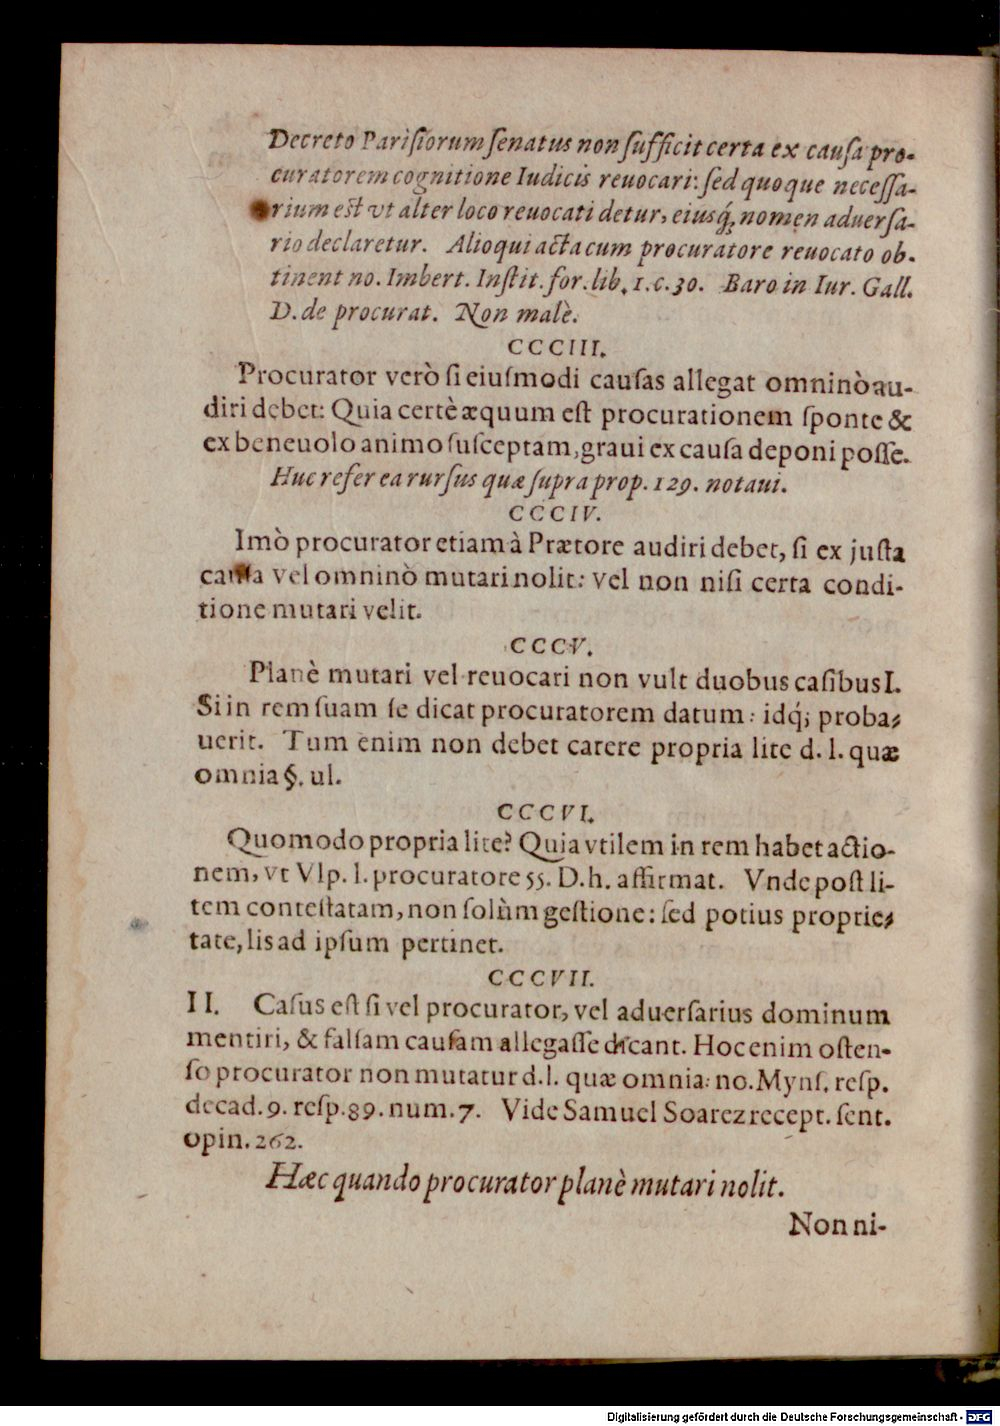 Decreto Parisiorum senatus non sufficit certa ex causa pro-
curatorem cognitione Iudicis reuocari: sed quoque necessa-
rium est vt alter loco reuocati detur, eiusq́; nomen aduersa-
rio declaretur. Alioqui acta cum procuratore reuocato ob-
tinent no. Imbert. Instit. for. lib. 1. c. 30. Baro in Iur. Gall.
D. de procurat. Non malè.
CCCIII.
Procurator verò si eiusmodi causas allegat omninò au-
diri debet: Quia certè æquum est procurationem sponte &
ex beneuolo animo susceptam, graui ex causa deponi posse.
Huc refer ea rursus quæ supra prop. 129. notaui.
CCCIV.
Imò procurator etiam à Prætore audiri debet, si ex justa
causa vel omninò mutari nolit: vel non nisi certa condi-
tione mutari velit.
CCCV.
Planè mutari vel reuocari non vult duobus casibus I.
Si in rem suam se dicat procuratorem datum: idq́; proba-
uerit. Tum enim non debet carere propria lite d. l. quæ
omnia §. ul.
CCCVI.
Quomodo propria lite? Quia vtilem in rem habet actio-
nem, vt Vlp. l. procuratore 55. D. h. affirmat. Vnde post li-
tem contestatam, non solùm gestione: sed potius proprie-
tate, lis ad ipsum pertinet.
CCCVII.
II. Casus est si vel procurator, vel aduersarius dominum
mentiri, & falsam causam allegasse dicant. Hoc enim osten-
so procurator non mutatur d. l. quæ omnia: no. Myns. resp.
decad. 9. resp. 89. num. 7. Vide Samuel Soarez recept. sent.
opin. 262.
Hæc quando procurator planè mutari nolit.
Non ni-
Digitalisierung gefördert durch die Deutsche Forschungsgemeinschaft - DFG